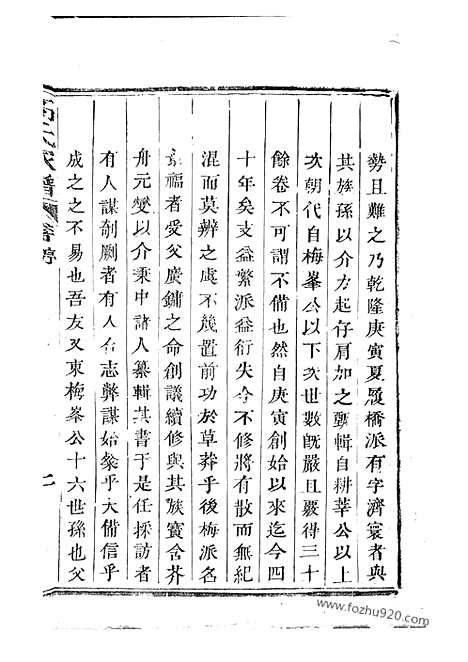 勢且難之乃乾隆庚寅夏履橋派有字濟寰者與
其族孫以介方起仔肩加之甄輯自耕莘公以上
次朝代自梅峯公以下次世數既嚴且覈得三十
餘卷不可謂不備也然自庚寅創始以來迄今四
十年矣支益繁派益衍失今不修將有散而無紀
混而莫辨之虞不幾置前功於草莽乎後梅派名
福者受父廣鏞之命創議續修與其族賓含芥
舟元燮以介秉中諸人纂輯其書于是任採訪者
有人謀剞劂者有人合志弊謀始粲乎大備信乎
成之之不易也吾友又東梅峯公十六世孫也父
氏家譜 卷 序
二
www.fozhu920.com